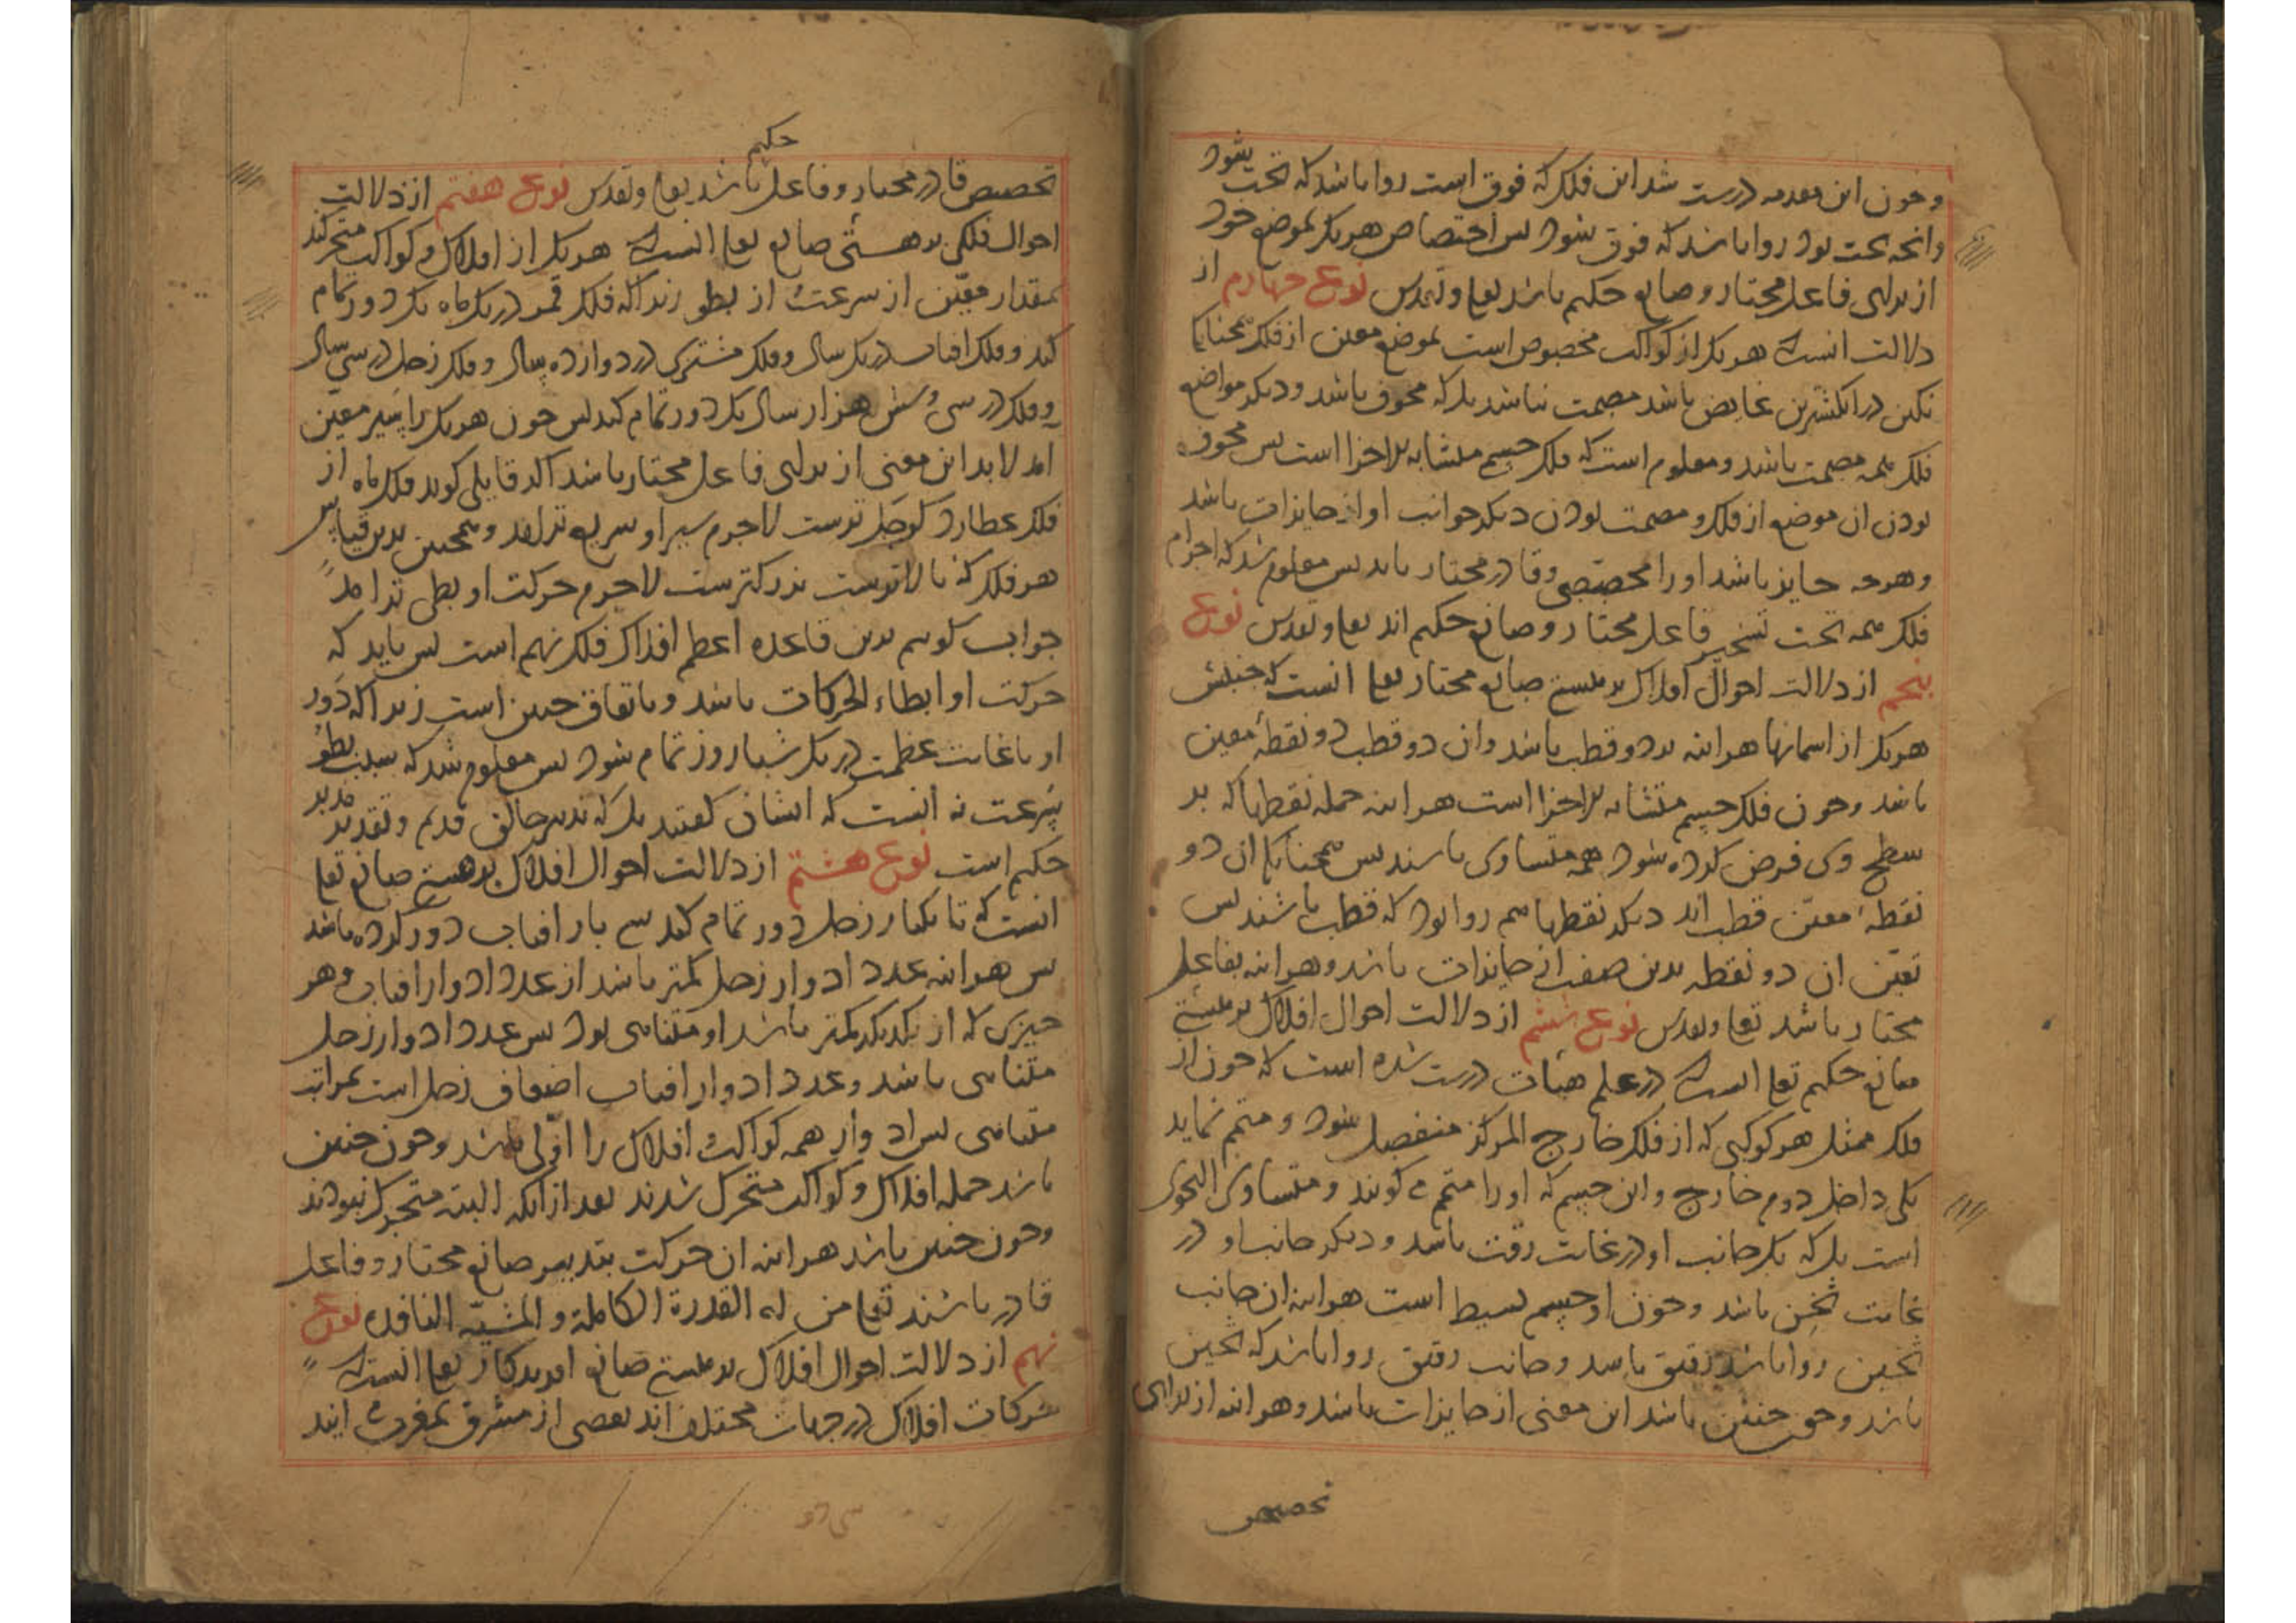 و چون این مقدمه درست شد این فلک که فوق است روا باشد که تحت شود
وانچه تحت بود روا باشد که فوق شود بس اختصاص هر یک بموضع خود
از برای فاعل مختار و صانع حکیم باشد تعا و تقدس نوع چهارم از
دلالت انست که هر یک از کواکب مخصوص است بموضع معین از فلک همچنانکه
نکین در انکشترین غایص باشد مصمت نباشد بلکه مجوف باشد و دیکر مواضع
فلک همه مصمت باشد و معلوم است که فلک جسم متشابه الاجزا است بس مجوف
بودن ان موضع از فلک و مصمت بودن دیکر جوانب او از جایزات باشد
و هرچه جایز باشد او را مخصصی و قادر مختار باید بس معلوم شد که اجرام
فلک همه تحت تسخیر فاعل مختار و صانع حکیم اند تعا و تقدس نوع
بنجم از دلالت احوال افلاک بر هستی صانع مختار تعا انست که جنبش
هر یک از اسمانها هراینه بر دو قطب باشد وان دو قطب دو نقطهٔ معین
باشد و چون فلک جسم متشابه الاجزا است هراینه جمله نقطها که بر
سطح وی فرض کرده شود همه متساوی باشند بس همچنانکه ان دو
نقطهٔ معین قطب اند دیکر نقطها هم روا بود که قطب باشند بس
تعین ان دو نقطه بدین صفت از جایزات باشد و هراینه بفاعل
مختار باشد تعا و تقدس نوع ششم از دلالت احوال افلاک بر هستی
صانع حکیم تعا انست که در علم هیات درست شده است که چون از
فلک ممثل هر کوکبی که از فلک خارج المرکز منفصل شود دو متمم نماید
یکی داخل دوم خارج واین جسم که او را متمم می کویند و متساوی الثخن
است بلکه یک جانب او در غایت رقت باشد و دیکر جانب او در
غایت ثخن باشد و چون او جسم بسیط است هراینه ان جانب
ثخین روا باشد رقیق باشد و جانب رقیق روا باشد که ثخین
باشد و چون چنین باشد این معنی از جایزات باشد و هراینه از برای
تخصیص
حکیم
تخصیص قادر مختار و فاعل باشد تعا و تقدس نوع هفتم از دلالت
احوال فلکی بر هستی صانع تعا انست که هر یک از افلاک و کواکب متحرکند
بمقدار معین از سرعت از بطو زیرا که فلک قمر در یک ماه یک دور تمام
کند و فلک افتاب در یک سال و فلک مشتری در دوازده سال و فلک زحل در سی سال
و فلک در سی و شش هزار سال یک دور تمام کند بس چون هر یک را سیر معین
امد لابد این معنی از برای فاعل مختار باشد اکر قایلی کوید فلک ماه از
فلک عطارد کوچک ترست لاجرم سیر او سریع تر امد و همچنین برین قیاس
هر فلک که بالاترست بزرکترست لاجرم حرکت او بطی تر امد
جواب کوییم برین قاعده اعظم افلاک فلک نهم است بس باید که
حرکت او ابطاء الحرکات باشد و باتفاق چنین است زیرا که دور
او با غایت عظمت در یک شبا روز تمام شود بس معلوم شد که سبب بطو
سرعت نه انست که ایشان کفتند بلکه تدبیر خالق قدیم و تقدیر مدبر
حکیم است نوع هشتم از دلالت احوال افلاک بر هستی صانع تعا
انست که تا یکبار زحل دور تمام کند سی بار افتاب دور کرده باشد
بس هراینه عدد ادوار زحل کمتر باشد از عدد ادوار افتاب و هر
چیزی که از یکدیکر کمتر باشد او متناهی بود بس عدد ادوار زحل
متناهی باشد و عدد ادوار افتاب اضعاف زحل است بمراتب
متناهی بس ادوار همه کواکب افلاک را اولی باشد و چون چنین
باشد جمله افلاک و کواکب متحرک شدند بعد از انکه البته متحرک نبودند
و چون چنین باشد هراینه ان حرکت بتدبیر صانع مختار و فاعل
قادر باشند تعا من له القدرة الکاملة و المشیه النافذه نوع
نهم از دلالت احوال افلاک بر هستی صانع افریدکار تعا انست که
حرکات افلاک در جهات مختلف اند بعضی از مشرق بمغرب می ایند